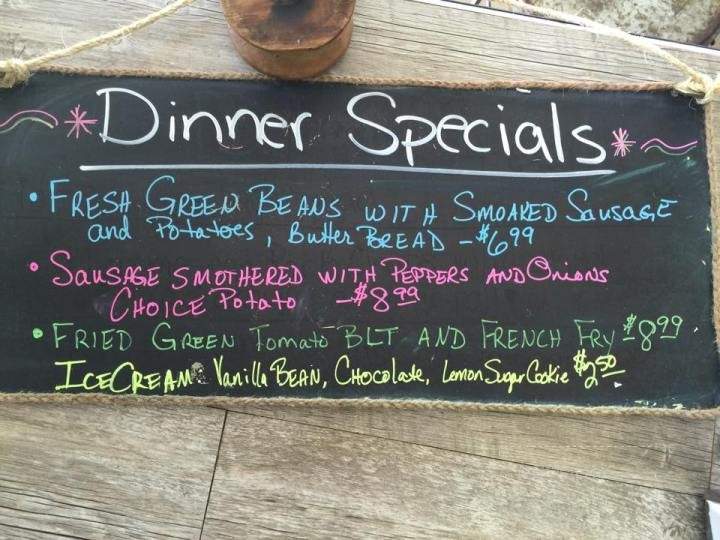 Dinner Specials
• FRESH GREEN BEANS WITH SMOAKED SAUSAGE
and Potatoes, Butter BREAD - $6.99
• SAUSAGE SMOTHERED WITH PEPPERS AND Onions
CHOICE Potato - $8.99
• FRIED GREEN Tomato BLT AND FRENCH FRY $8.99
ICE CREAM Vanilla BEAN, CHOCOlate, Lemon Sugar Cookie $2.50